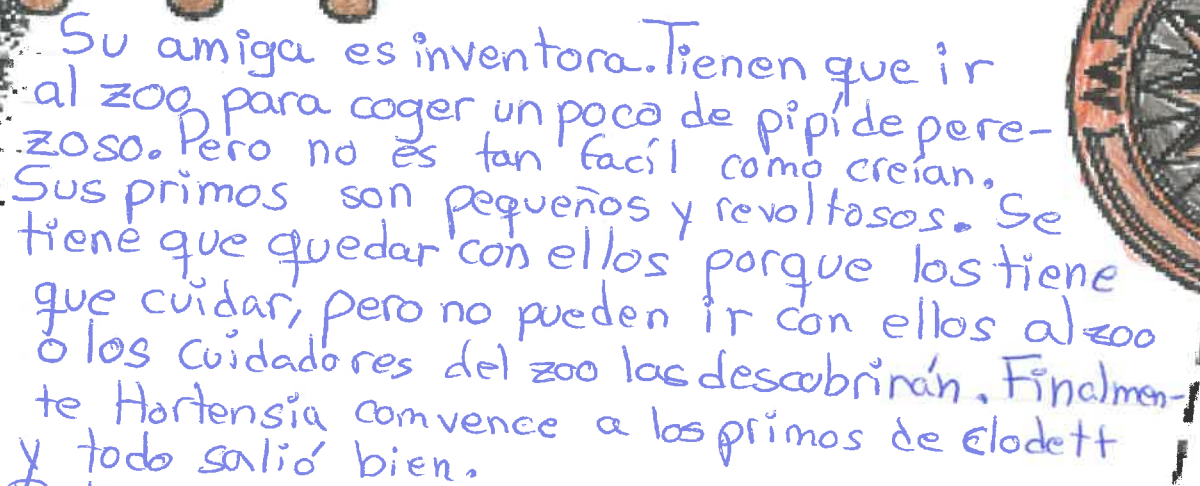 Su amiga es inventora. Tienen que ir
al zoo para coger un poco de pipí de pere-
zoso. Pero no es tan facíl como creían.
Sus primos son pequeños y revoltosos. Se
tiene que quedar con ellos porque los tiene
que cuidar, pero no pueden ir con ellos al zoo
o los cuidadores del zoo las descubrirán. Finalmen-
te Hortensia comvence a los primos de Clodett
y todo salió bien.